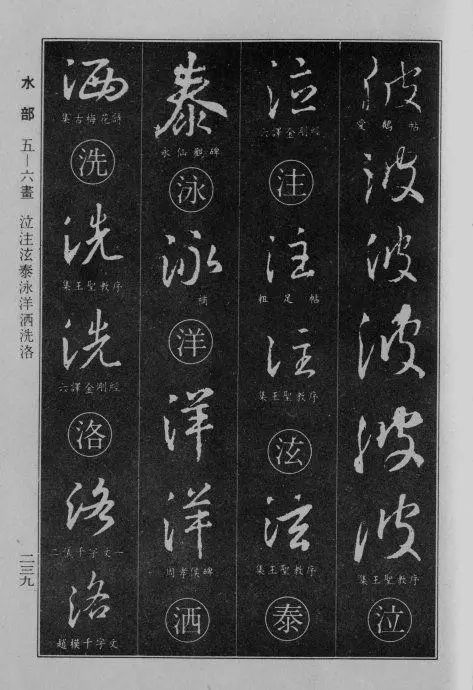 水部 五—六畫 泣注泫泰泳洋洒洗洛
二三九
波
愛鵝帖
波
波
波
波
波
集王聖教序
泣
泣
六譯金剛經
注
注
粗足帖
注
集王聖教序
泫
泫
集王聖教序
泰
泰
水仙觀碑
泳
泳
補
洋
洋
洋
周孝侯碑
洒
洒
集古梅花詩
洗
洗
集王聖教序
洗
六譯金剛經
洛
洛
二集千字文一
洛
趙模千字文